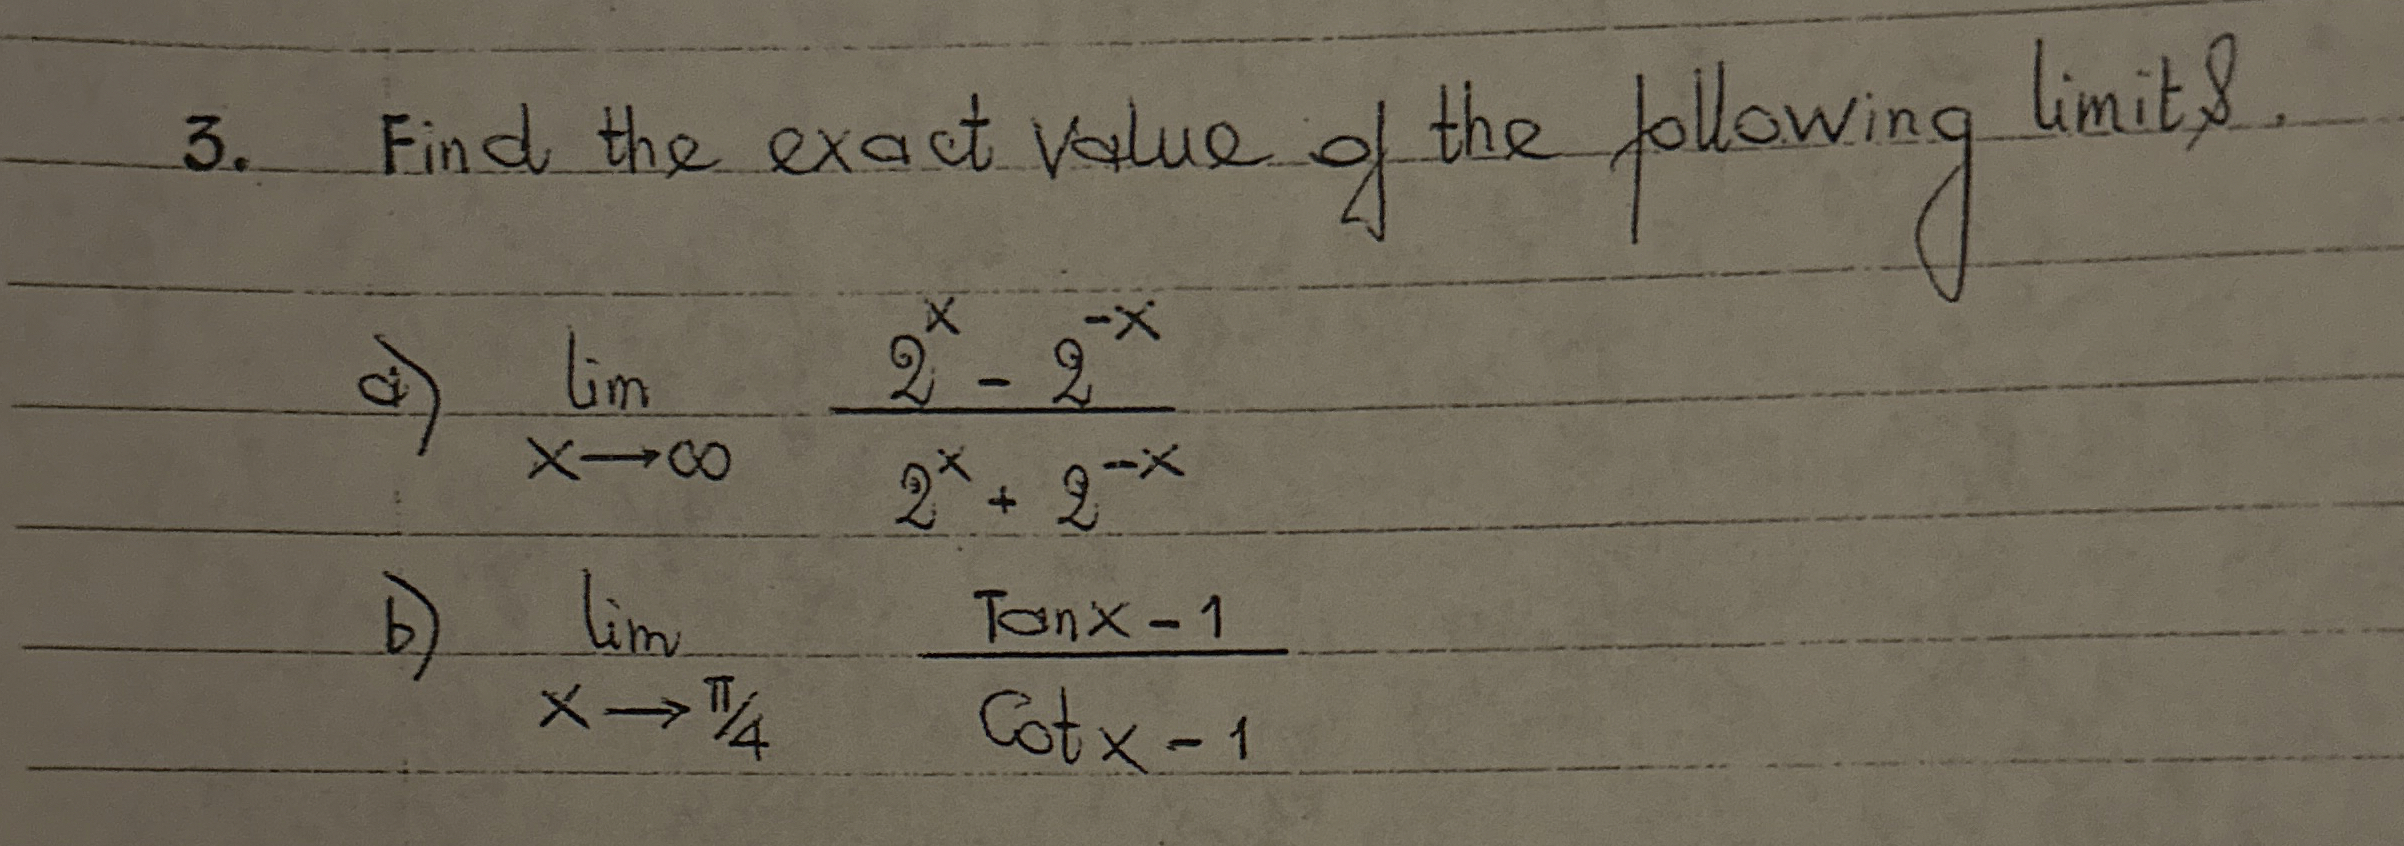 3. Find the exact value of the following limits.
a) lim x→∞ (2^x - 2^-x) / (2^x + 2^-x)
b) lim x→π/4 (Tan x - 1) / (Cot x - 1)